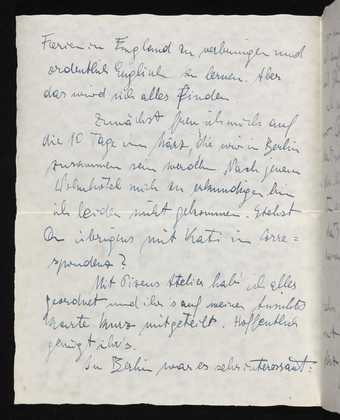 Ferien in England zu verbringen und
ordentlich Englisch zu lernen. Aber
das wird sich alles finden
Zunächst freu ich mich auf
die 10 Tage im März, die wir in Berlin
zusammen sein werden. Nach jenem
Wohnhotel mich zu erkundigen bin
ich leider nicht gekommen. Stehst
Du übrigens mit Kati in Corre=
spondenz?
Mit Pisens Atelier hab' ich alles
geordnet und ihr's auf meiner Ansichts
karte kurz mitgeteilt. Hoffentlich
genügt ihr's.
In Berlin war es sehr interessant: